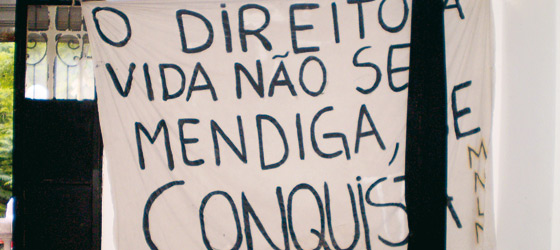 O DIREITO A
VIDA NÃO SE
MENDIGA, SE
CONQUISTA
MNLM